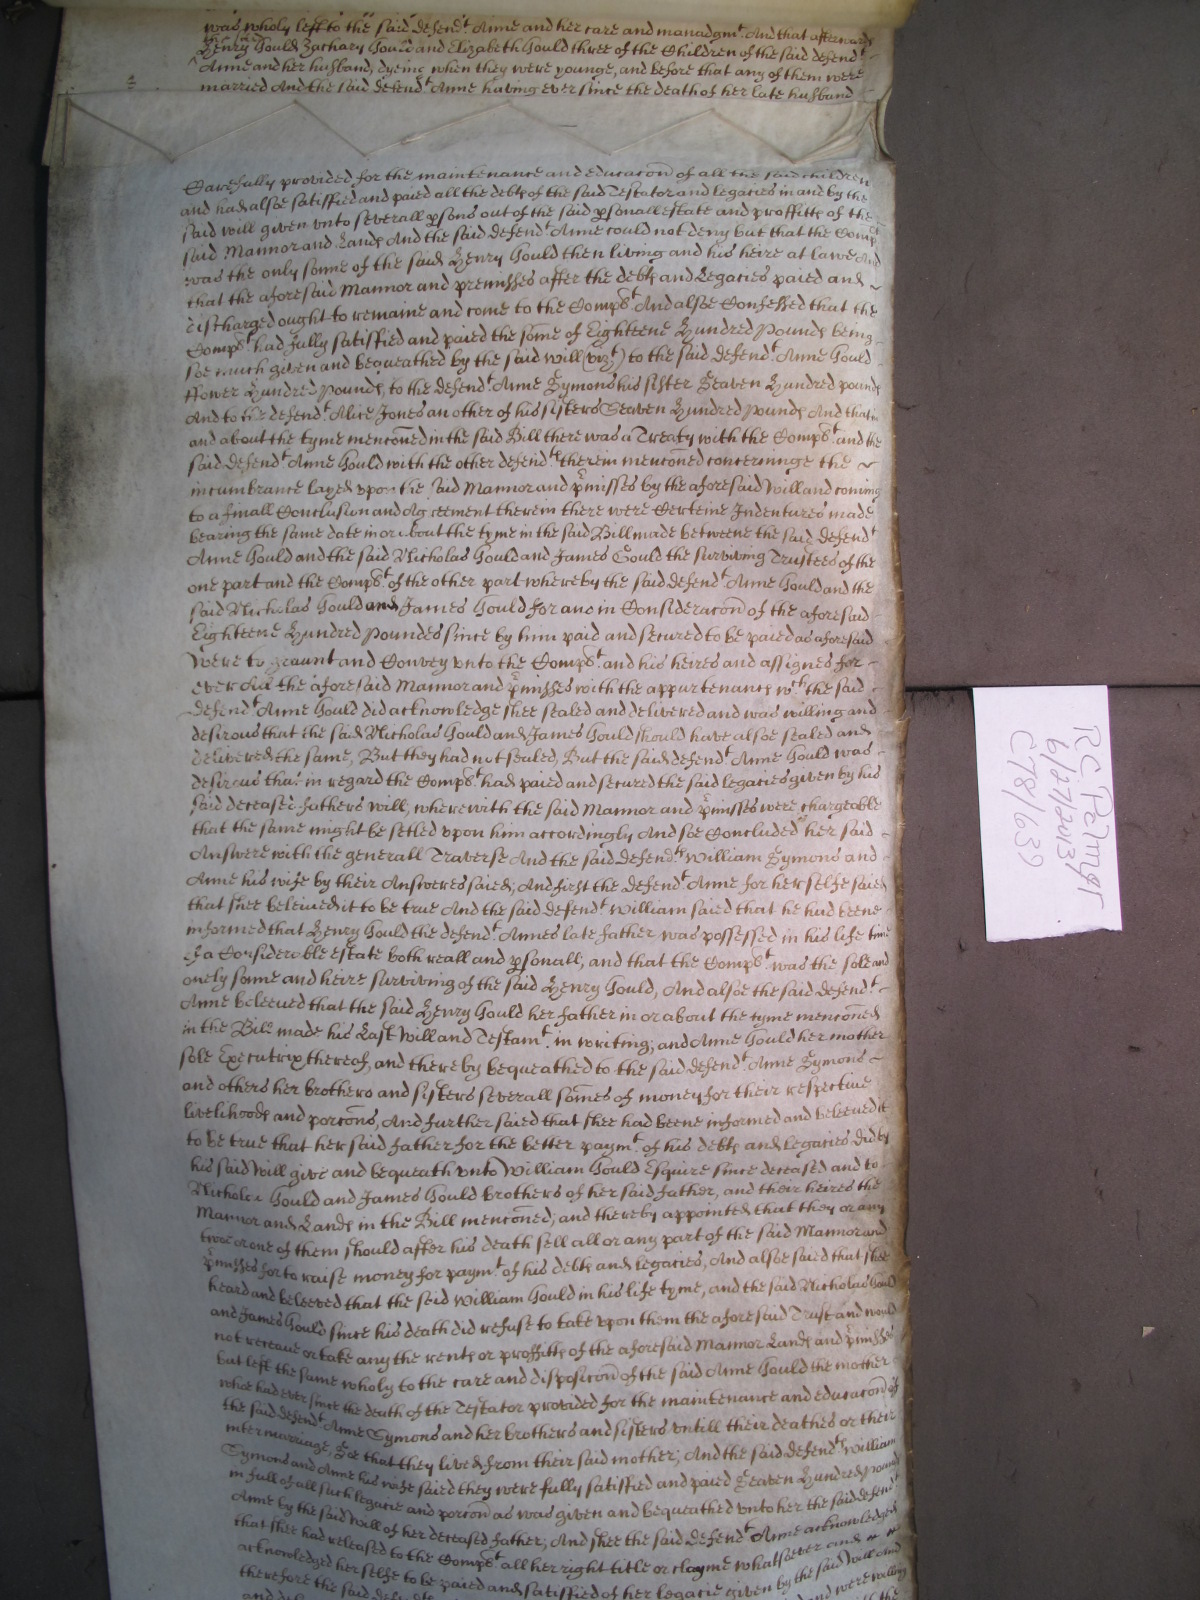 was wholy left to the said defend.t Anne and her care and managm.t And that afterwards
Henry Gould Zachary Gould and Elizabeth Gould three of the Children of the said defend.t
Anne and her husband, dyeing when they were younge, and before that any of them were
married And the said defend.t Anne having ever since the death of her late husband
Carefully provided for the maintenance and educacon of all the said children
and had alsoe satisfied and paied all the debts of the said Testator and legacies in and by the
said will given unto severall psons out of the said psonall estate and proffitts of the
said Mannor and Lands And the said defend.t Anne could not deny but that the Comp.lt
was the only sonne of the said Henry Gould then living and his heire at lawe And
that the aforesaid Mannor and premisses after the debts and Legacies paied and
discharged ought to remaine and come to the Compl.t And alsoe Confessed that the
Compl.t had fully satisfied and paied the some of Eighteene Hundred Pounds being
soe much given and bequeathed by the said will (viz.t) to the said defend.t Anne Gould
ffower Hundred Pounds, to the defend.t Anne Symons his sister Seaven Hundred pounds
And to the defend.t Alice Jones an other of his sisters Seaven Hundred Pounds And that in
and about the tyme menconed in the said Bill there was a Treaty with the Compl.t and the
said defend.t Anne Gould with the other defend.ts therein menconed concerninge the
incumbrance layed upon the said Mannor and pmisses by the aforesaid Will and coming
to a finall Conclusion and Agreement therein there were Certeine Indentures made
bearing the same date in or about the tyme in the said Bill made betweene the said defend.t
Anne Gould and the said Nicholas Gould and James Gould the surviving Trustees of the
one part and the Compl.t of the other part whereby the said defend.t Anne Gould and the
said Nicholas Gould and James Gould for and in Consideracon of the aforesaid
Eighteene Hundred Poundes since by him paid and secured to be paied as aforesaid
Were to graunt and Convey unto the Compl.t and his heires and assignes for
ever all the aforesaid Mannor and pmisses with the appurtenances w.ch the said
defend.t Anne Gould did acknowledge shee sealed and delivered and was willing and
desirous that the said Nicholas Gould and James Gould should have alsoe sealed and
delivered the same, But they had not sealed, But the said defend.t Anne Gould was
desirous that in regard the Compl.t had paied and secured the said legacies given by his
said deceased fathers will, wherewith the said Mannor and pmisses were chargeable
that the same might be setled upon him accordingly And soe Concluded her said
Answere with the generall Traverse And the said defend.ts William Symons and
Anne his wife by their Answeres saied; And first the defend.t Anne for her selfe saied
that shee beleived it to be true And the said defend.t William saied that he had beene
informed that Henry Gould the defend.t Annes late father was possessed in his life time
of a Considerable estate both reall and psonall, and that the Compl.t was the sole and
onely sonne and heire surviving of the said Henry Gould, And alsoe the said defend.t
Anne beleeved that the said Henry Gould her father in or about the tyme menconed
in the Bill made his Last Will and Testam.t in writing; and Anne Gould her mother
sole Executrix thereof, and thereby bequeathed to the said defend.t Anne Symons
and others her brothers and sisters severall somes of money for their respective
livelihoods and porcons, And further saied that shee had beene informed and beleeved it
to be true that her said father for the better paym.t of his debts and legacies did by
his said will give and bequeath unto William Gould Esquire since deceased and to
Nicholas Gould and James Gould brothers of her said father, and their heires the
Mannor and Lands in the Bill menconed; and thereby appointed that they or any
two or one of them should after his death sell all or any part of the said Mannor and
pmisses for to raise money for paym.t of his debts and legacies, And alsoe saied that shee
heard and beleeved that the said William Gould in his life tyme, and the said Nicholas Gould
and James Gould since his death did refuse to take upon them the aforesaid Trust and would
not receave or take any the rents or proffitts of the aforesaid Mannor Lands and pmisses
but left the same wholy to the care and disposicon of the said Anne Gould the mother
who had ever since the death of the Testator provided for the maintenance and educacon of
the said defend.t Anne Symons and her brothers and sisters untill their deathes or their
intermarriage, Soe that they lived from their said mother; And the said defend.ts William
Symons and Anne his wife saied they were fully satisfied and paied Seaven Hundred pounds
in full of all such legacie and porcon as was given and bequeathed unto her the said defend.t
Anne by the said will of her deceased father; And shee the said defend.t Anne acknowledged
that shee had released to the Compl.t all her right title or clayme whatsoever and
acknowledged herselfe to be paied and satisfied of her legacie given by the said will and
therefore the said defend.ts and were willing
RC Palmer
6/27/2013
C78/639